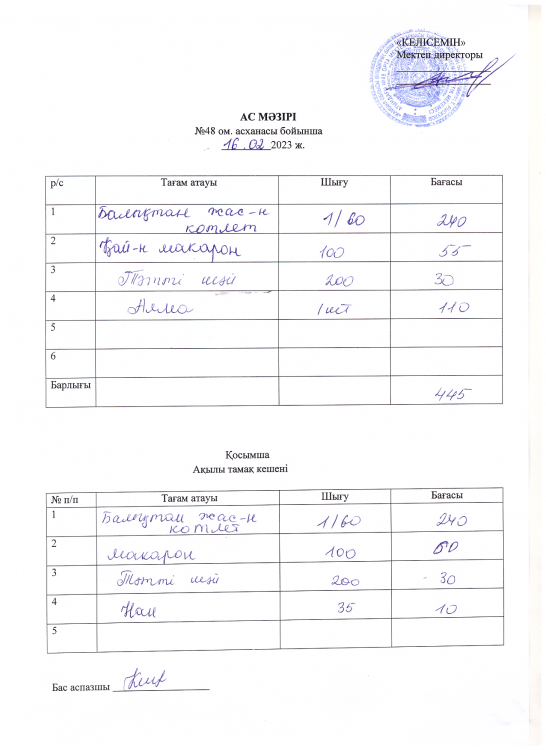 «КЕЛІСЕМІН»
Мектеп директоры
АС МӘЗІРІ
№48 ом. асханасы бойынша
16.02 2023 ж.
р/с Тағам атауы Шығу Бағасы
1 Балықтан жас-н котлет 1/60 240
2 Қай-н макарон 100 55
3 Тәтті шәй 200 30
4 Алма 1 шт 110
5
6
Барлығы 445
Қосымша
Ақылы тамақ кешені
№ п/п Тағам атауы Шығу Бағасы
1 Балықтан жас-н котлет 1/60 240
2 макарон 100
3 Тәтті шәй 200 30
4 Нан 35 10
5
Бас аспазшы